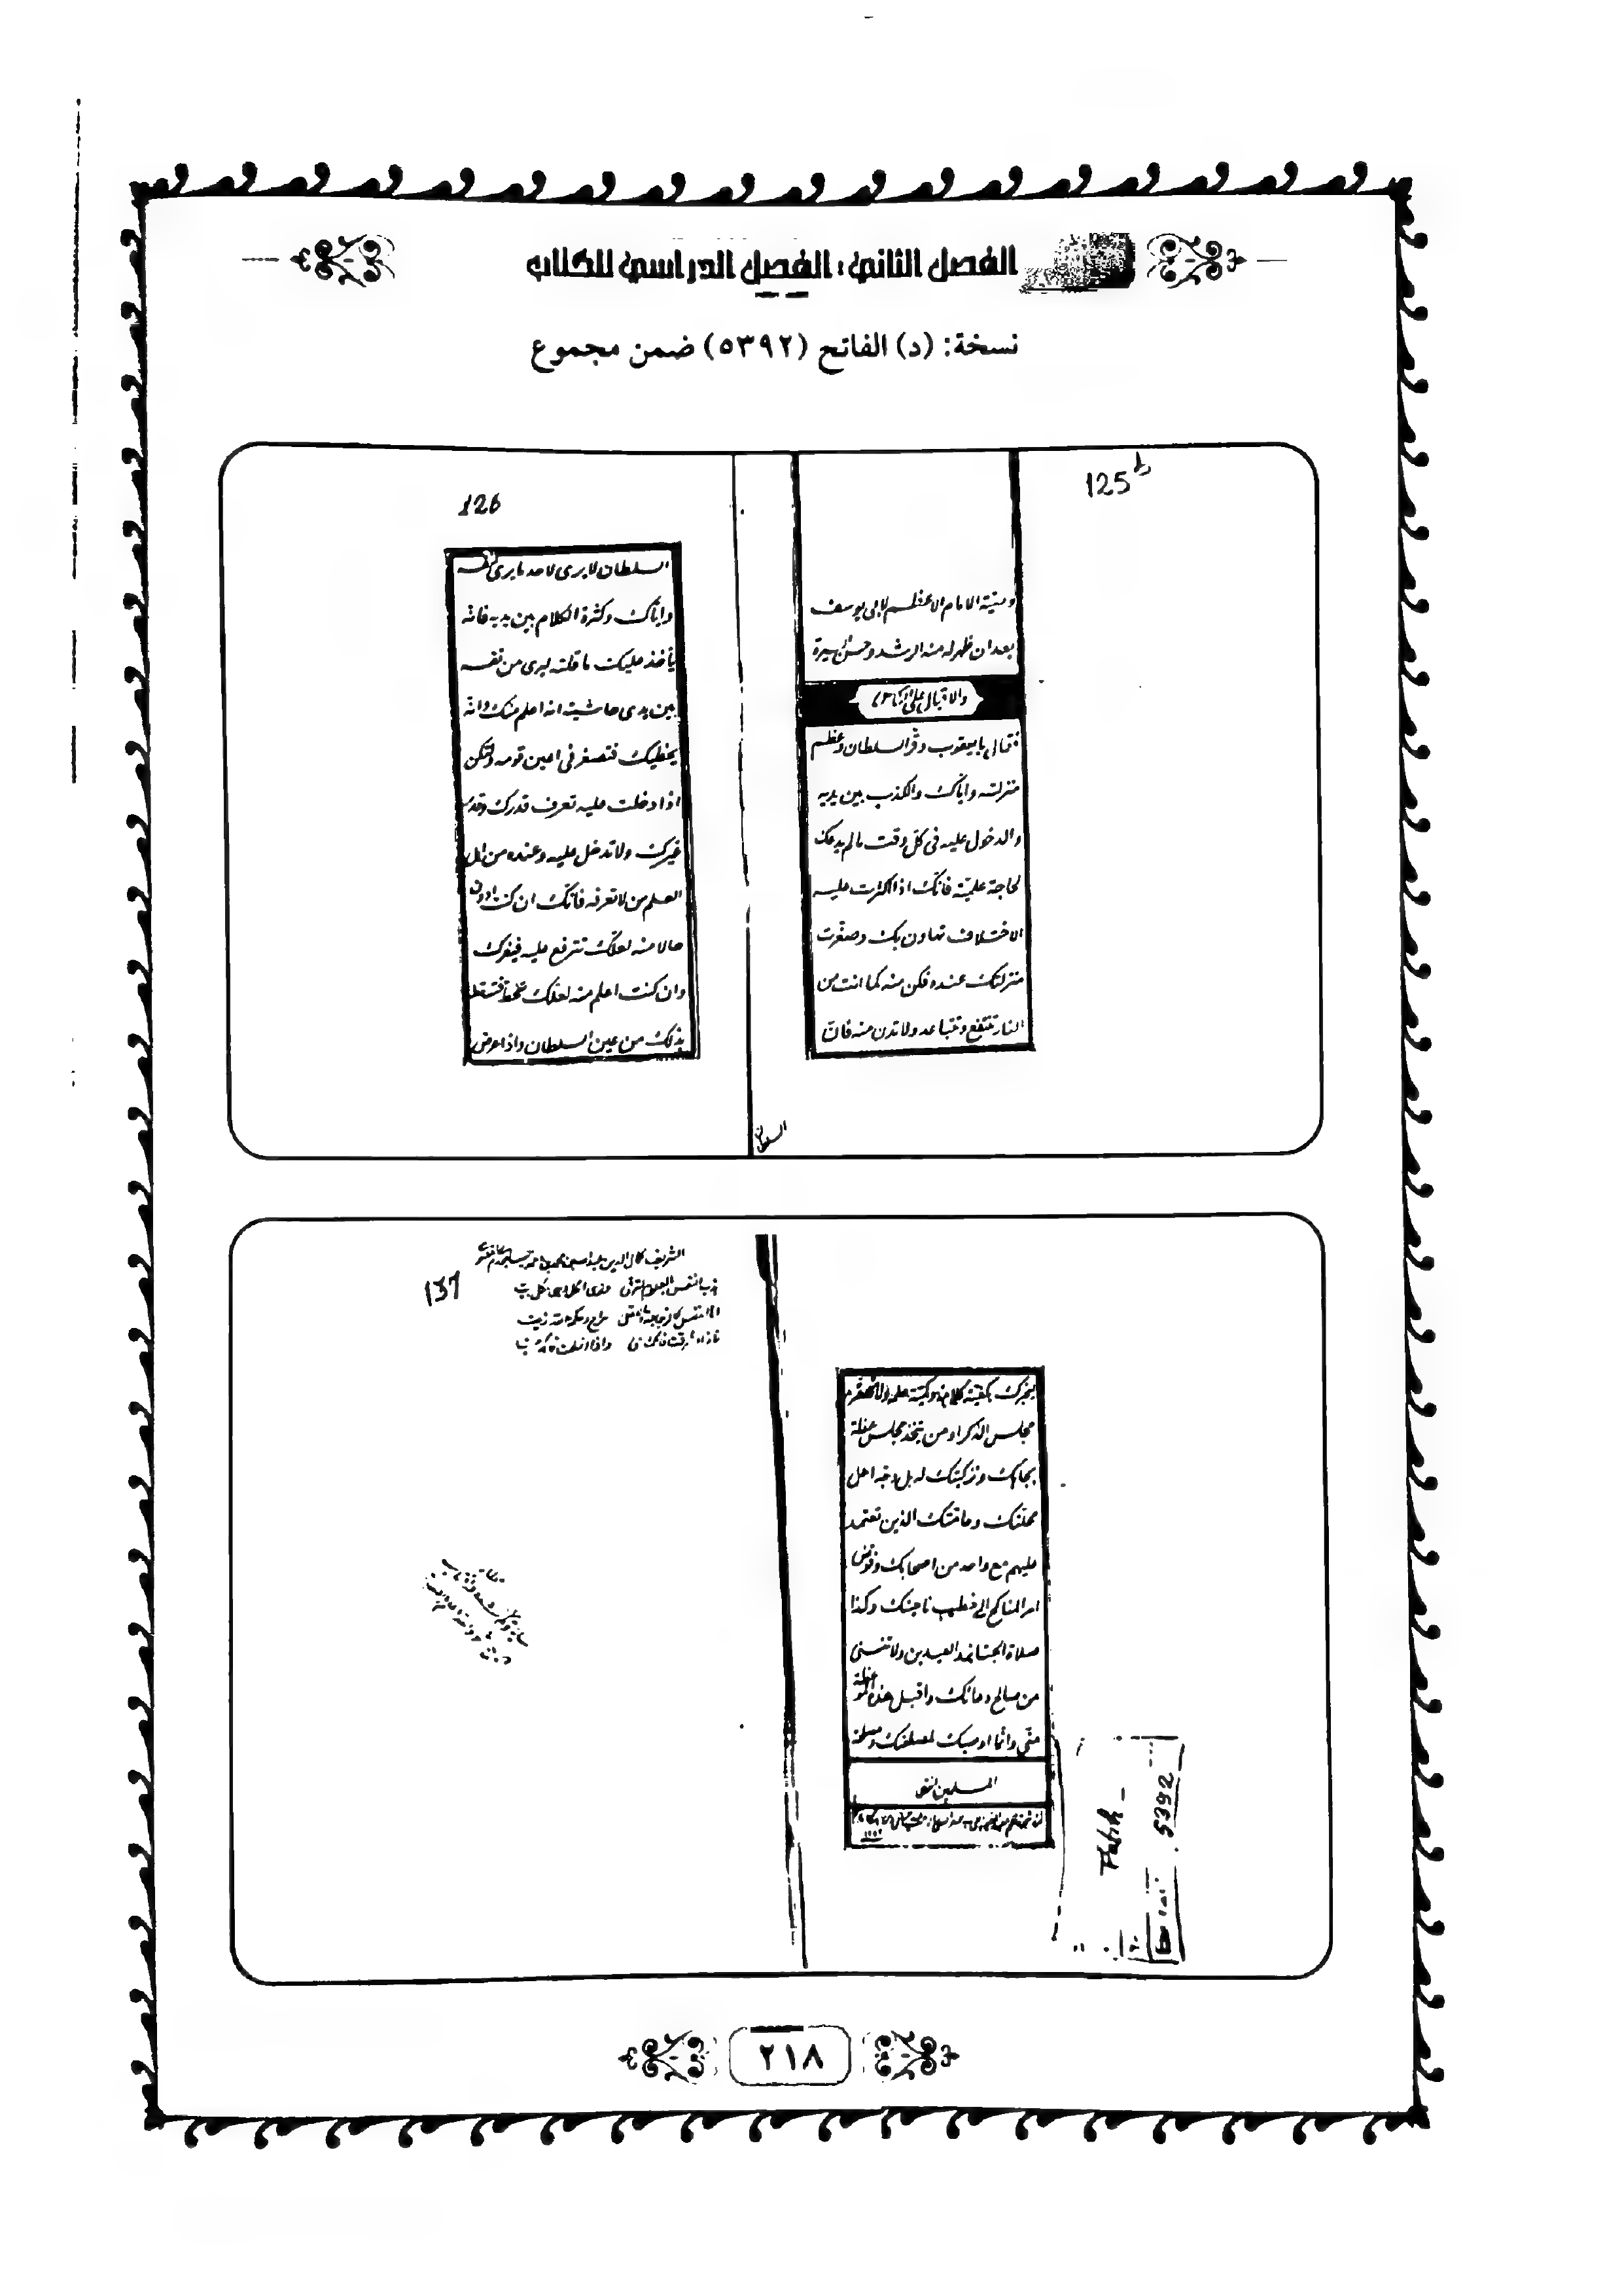 الفصل الثاني: الفصل الدراسي للكتاب
نسخة: (د) الفاتح (٥٣٩٢) ضمن مجموع
125b
وصية الامام الاعظم لابى يوسف
بعد ان ظهر له منه الرشد وحسن السيرة
والاقبال على الناس
فقال يا يعقوب وقر السلطان وعظم
منزلته واياك والكذب بين يديه
والدخول عليه فى كل وقت مالم يدعك
لحاجة علمية فانك اذا اكثرت عليه
الاختلاف تهاون بك وصغرت
منزلتك عنده فكن منه كما انت من
النار تنتفع وتتباعد ولا تدن منه فان
126
السلطان لا يرى لاحد ما يرى لنفسه
واياك وكثرة الكلام بين يديه فانه
يأخذ عليك ما قلته ليرى من نفسه
بين يدى حاشيته انه اعلم منك وانه
يخطيك فتصغر فى اعين قومه ولتكن
اذا دخلت عليه تعرف قدرك وقدر
غيرك ولا تدخل عليه وعنده من اهل
العلم من لا تعرفه فانك ان كنت ادون
حالا منه لعلك تترفع عليه فيضرك
وان كنت اعلم منه لعلك تنحط فتسقط
بذلك من عين السلطان واذا عرض
يخبرك بكيفية كلامه وكمية علمه ولا تحضر
مجلس الذكر او من يتخذ مجلس عظة
بجاهك وتزكيتك له بل وجه اهل
محلتك وعامتك الذين تعتمد
عليهم مع واحد من اصحابك وفوض
امر المناكح الى خطيب ناحيتك وكذا
صلاة الجنازة والعيدين ولا تنسنى
من صالح دعائك واقبل هذه الموعظة
منى وانما اوصيك لمصلحتك ومصلحة
المسلمين انتهى
137
Fatih
5392
٢١٨